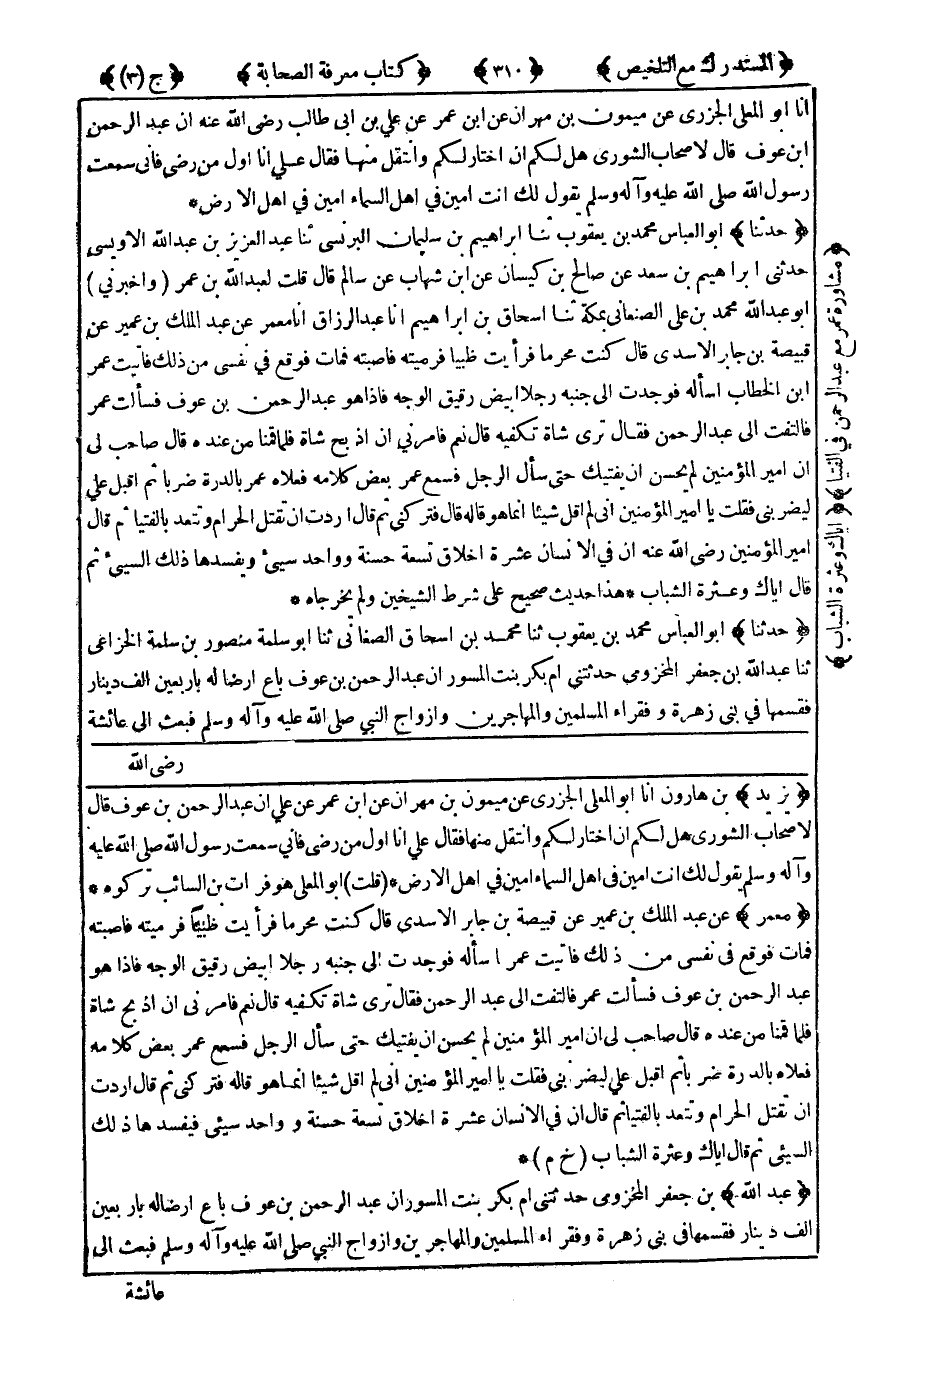 ﴿ المستدرك مع التلخيص ﴾ ﴿ ٣١٠ ﴾ ﴿ كتاب معرفة الصحابة ﴾ ﴿ ج (٣) ﴾
انا ابو المعلى الجزرى عن ميمون بن مهران عن ابن عمر عن علي بن ابى طالب رضى الله عنه ان عبد الرحمن
ابن عوف قال لاصحاب الشورى هل لكم ان اختار لكم وانتقل منها فقال علي انا اول من رضى فانى سمعت
رسول الله صلى الله عليه وآله وسلم يقول لك انت امين في اهل السماء امين في اهل الارض *
﴿ حدثنا ﴾ ابو العباس محمد بن يعقوب ثنا ابراهيم بن سليمان البرنسى ثنا عبد العزيز بن عبد الله الاويسى
حدثنى ابراهيم بن سعد عن صالح بن كيسان عن ابن شهاب عن سالم قال قلت لعبد الله بن عمر ( واخبرني )
ابو عبد الله محمد بن علي الصنعانى بمكة ثنا اسحاق بن ابراهيم انا عبد الرزاق انا معمر عن عبد الملك بن عمير عن
قبيصة بن جابر الاسدى قال كنت محرما فرأيت ظبيا فرميته فاصبته فمات فوقع في نفسى من ذلك فاتيت عمر
ابن الخطاب اسأله فوجدت الى جنبه رجلا ابيض رقيق الوجه فاذا هو عبد الرحمن بن عوف فسألت عمر
فالتفت الى عبد الرحمن فقال ترى شاة تكفيه قال نعم فامرني ان اذبح شاة فلما قمنا من عنده قال صاحب لى
ان امير المؤمنين لم يحسن ان يفتيك حتى سأل الرجل فسمع عمر بعض كلامه فعلاه عمر بالدرة ضربا ثم اقبل علي
ليضربنى فقلت يا امير المؤمنين انى لم اقل شيئا انما هو قاله قال فتركنى ثم قال اردت ان تقتل الحرام وتتعد بالفتيا ثم قال
امير المؤمنين رضى الله عنه ان في الانسان عشرة اخلاق تسعة حسنة وواحد سيئ ويفسدها ذلك السيئ ثم
قال اياك وعثرة الشباب * هذا حديث صحيح على شرط الشيخين ولم يخرجاه *
﴿ حدثنا ﴾ ابو العباس محمد بن يعقوب ثنا محمد بن اسحاق الصغانى ثنا ابو سلمة منصور بن سلمة الخزاعى
ثنا عبد الله بن جعفر المخزومى حدثتني ام بكر بنت المسور ان عبد الرحمن بن عوف باع ارضا له باربعين الف دينار
فقسمها في بنى زهرة و فقراء المسلمين والمهاجرين وازواج النبي صلى الله عليه وآله وسلم فبعث الى عائشة
رضى الله
﴿ يزيد ﴾ بن هارون انا ابو المعلى الجزرى عن ميمون بن مهران عن ابن عمر عن علي ان عبد الرحمن بن عوف قال
لاصحاب الشورى هل لكم ان اختار لكم وانتقل منها فقال علي انا اول من رضى فاني سمعت رسول الله صلى الله عليه
وآله وسلم يقول لك انت امين فى اهل السماء امين في اهل الارض * (قلت) ابو المعلى هو فرات بن السائب تركوه *
﴿ معمر ﴾ عن عبد الملك بن عمير عن قبيصة بن جابر الاسدى قال كنت محرما فرأيت ظبيًا فرميته فاصبته
فمات فوقع فى نفسى من ذلك فاتيت عمر اسأله فوجدت الى جنبه رجلا ابيض رقيق الوجه فاذا هو
عبد الرحمن بن عوف فسألت عمر فالتفت الى عبد الرحمن فقال ترى شاة تكفيه قال نعم فامرنى ان اذبح شاة
فلما قمنا من عنده قال صاحب لى ان امير المؤمنين لم يحسن ان يفتيك حتى سأل الرجل فسمع عمر بعض كلامه
فعلاه بالدرة ضربا ثم اقبل علي ليضربنى فقلت يا امير المؤمنين انى لم اقل شيئا انما هو قاله فتركنى ثم قال اردت
ان تقتل الحرام وتتعد بالفتيا ثم قال ان في الانسان عشرة اخلاق تسعة حسنة و واحد سيئى فيفسدها ذلك
السيئى ثم قال اياك وعثرة الشباب (خ م) *
﴿ عبد الله ﴾ بن جعفر المخزومى حدثتنى ام بكر بنت المسور ان عبد الرحمن بن عوف باع ارضا له باربعين
الف دينار فقسمها فى بنى زهرة وفقراء المسلمين والمهاجرين وازواج النبي صلى الله عليه وآله وسلم فبعث الى
عائشة
﴿ مشاورة عمر مع عبد الرحمن في الفتيا ﴾ ﴿ اياك وعثرة الشباب ﴾